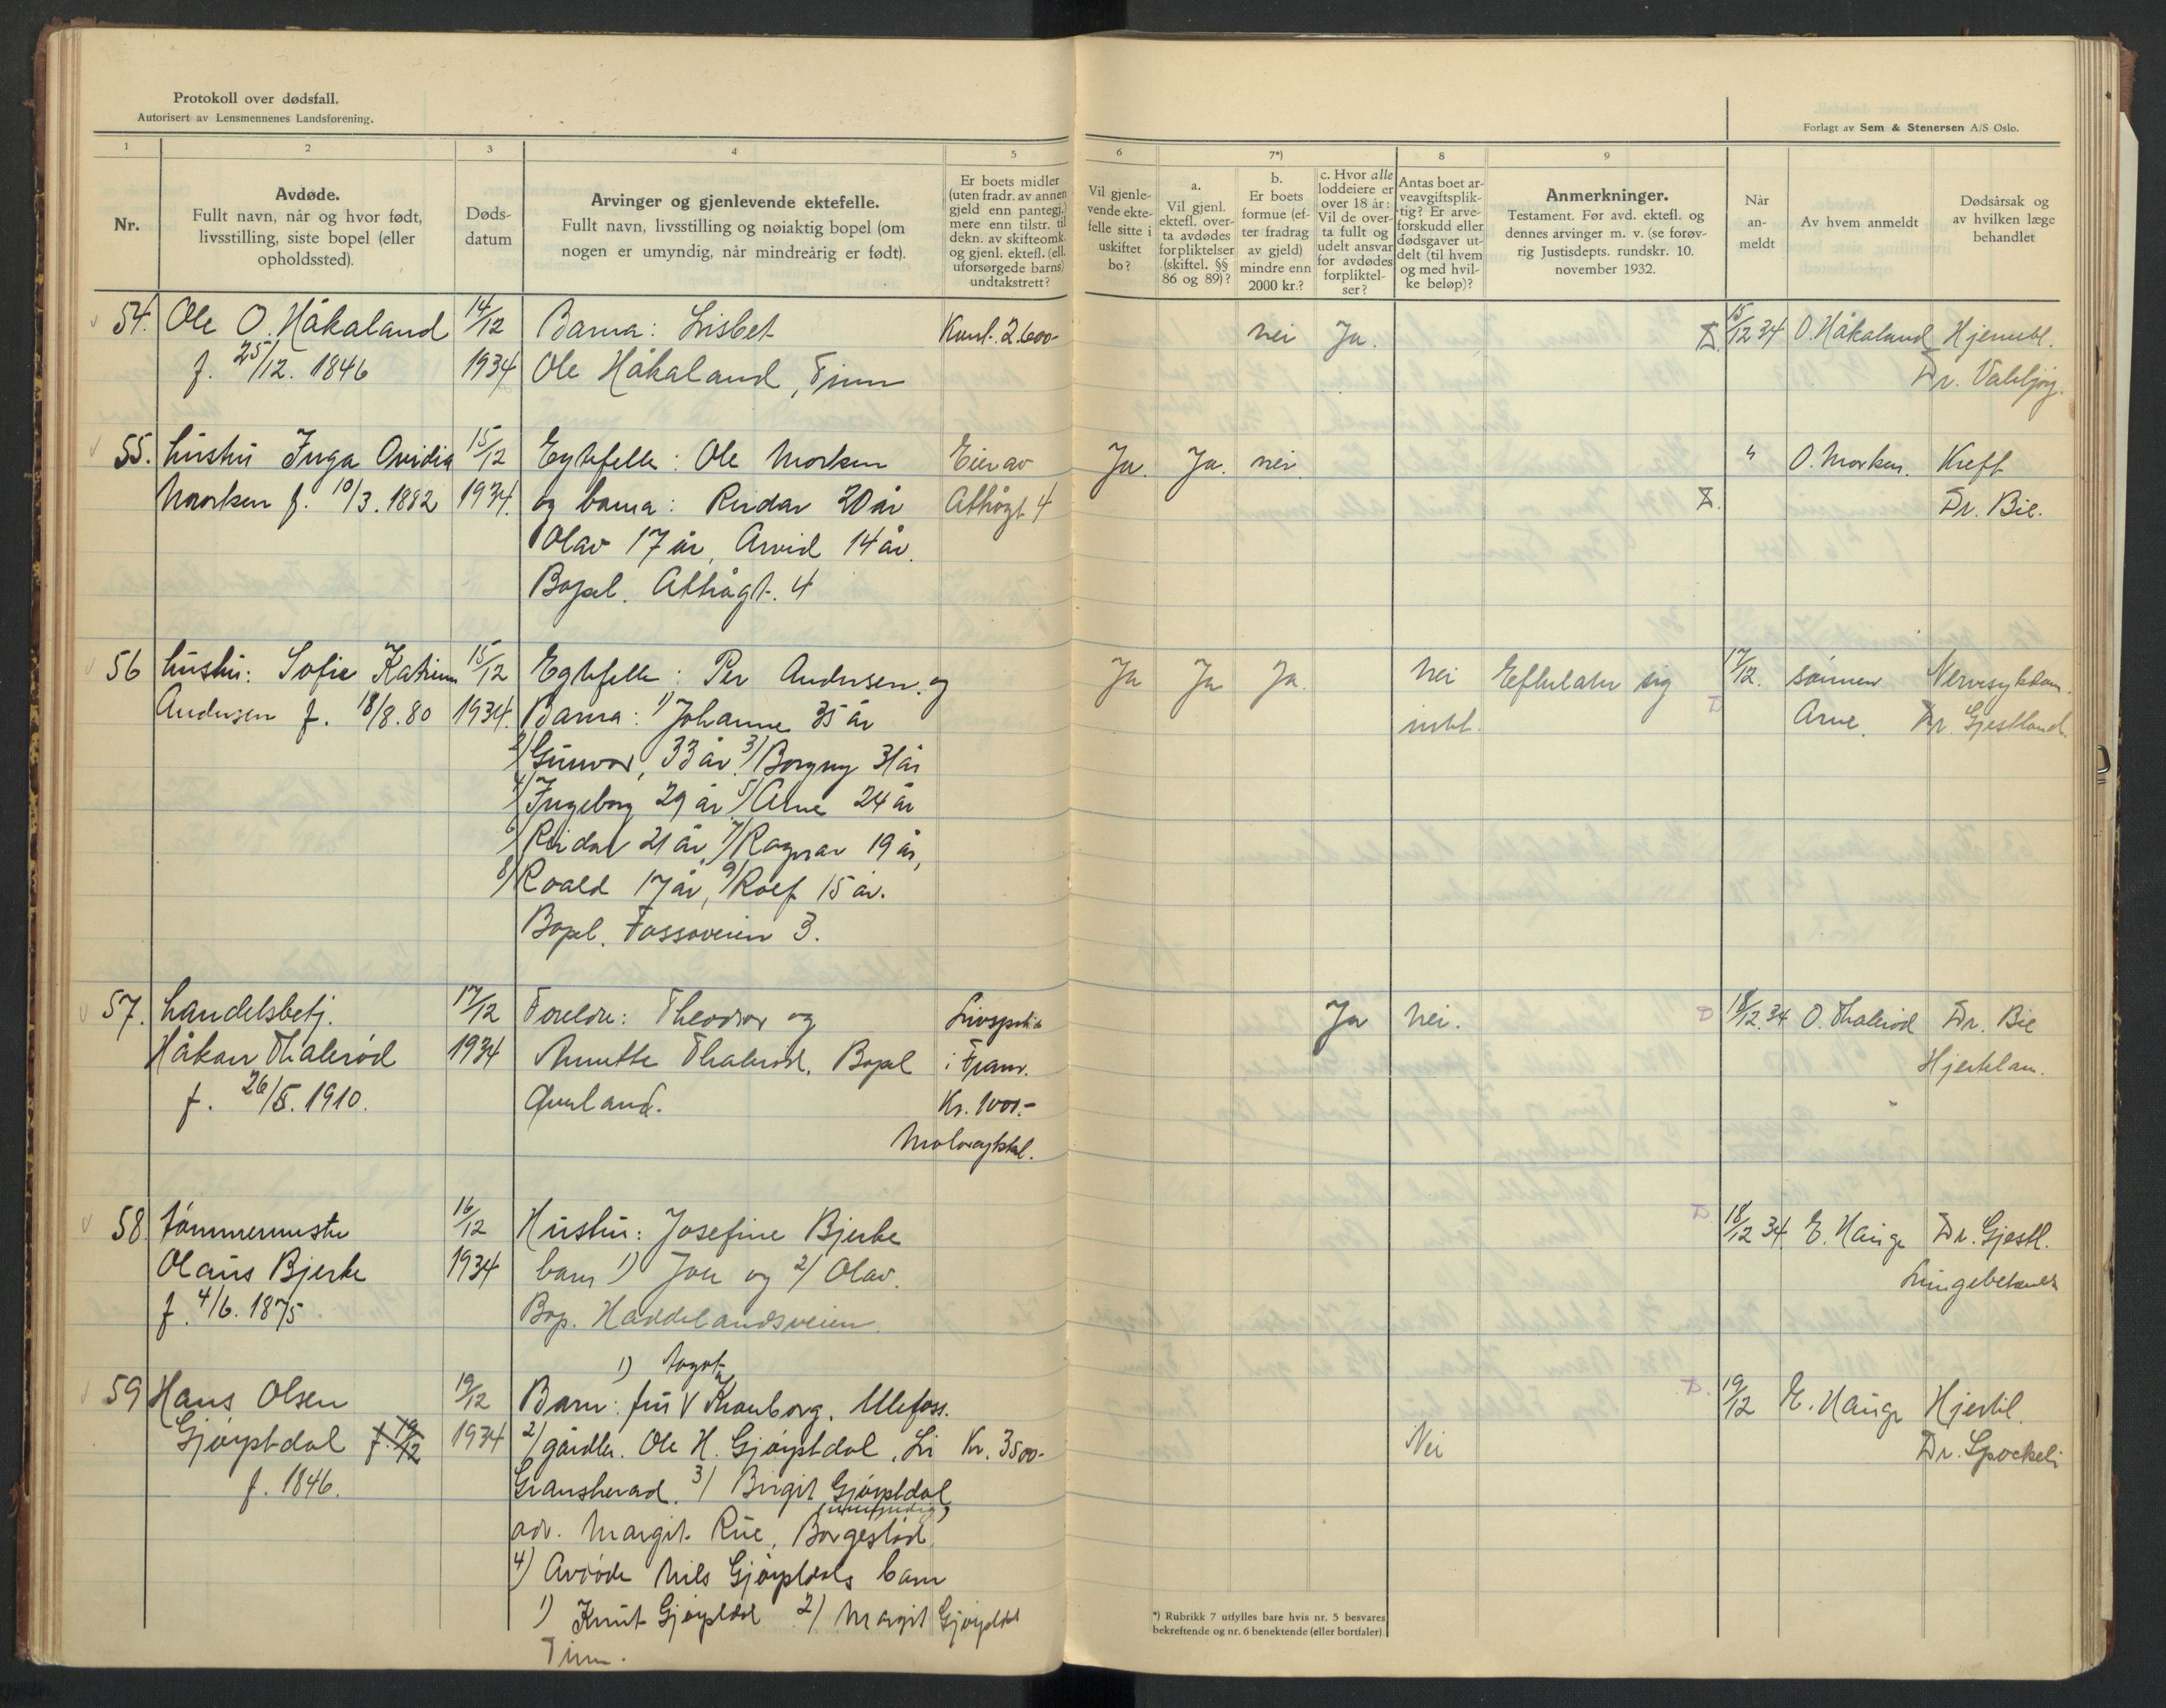 Protokoll over dødsfall.
Autorisert av Lensmennenes Landsforening.
Forlagt av Sem & Stenersen A/S Oslo.
1 2 3 4 5 6 7*) 8 9
Nr.
Avdøde.
Fullt navn, når og hvor født,
livsstilling, siste bopel (eller
opholdssted).
Døds-
datum
Arvinger og gjenlevende ektefelle.
Fullt navn, livsstilling og nøiaktig bopel (om
nogen er umyndig, når mindreårig er født).
Er boets midler
(uten fradr. av annen
gjeld enn pantegj.)
mere enn tilstr. til
dekn. av skifteomk.
og gjenl. ektefl. (ell.
uforsørgede barns)
undtakstrett?
Vil gjenle-
vende ekte-
felle sitte i
uskiftet
bo?
a.
Vil gjenl.
ektefl. over-
ta avdødes
forpliktelser
(skiftel. §§
86 og 89)?
b.
Er boets
formue (ef-
ter fradrag
av gjeld)
mindre enn
2000 kr.?
c. Hvor alle
loddeiere er
over 18 år:
Vil de over-
ta fullt og
udelt ansvar
for avdødes
forpliktel-
ser?
Antas boet ar-
veavgiftsplik-
tig? Er arve-
forskudd eller
dødsgaver ut-
delt (til hvem
og med hvil-
ke beløp)?
Anmerkninger.
Testament. Før avd. ektefl. og
dennes arvinger m. v. (se forøv-
rig Justisdepts. rundskr. 10.
november 1932.
Når
an-
meldt
Av hvem anmeldt
Dødsårsak og
av hvilken læge
behandlet
54. Ole O. Håkaland 14/12 Barna: Lisbet 2600- nei Ja. 15/12 34 O. Håkaland Hjernebl.
f. 25/12. 1846 1934 Ole Håkaland, Tinn Dr.
55. hustru Inga Ovidia 15/12 Egtefelle: Ole Morken Eier av Ja. Ja. nei. " O. Morken. Kreft
Morken f. 10/3. 1882 1934. og barna: Reidar 20 år 4 Dr. Bie.
Olav 17 år, Arvid 14 år.
Bopel. 4
56 hustru: Sofie Katrine 15/12 Egtefelle: Per Andersen og Ja Ja Ja. Nei Efterlater sig 17/12. sønnen Nervesykdom.
Andersen f. 18/8. 80 1934. Barna: 1) Johanne 35 år intet. Arne. Dr. Gjestland.
2) Gunvor, 33 år. 3) Borgny 31 år
4) Ingeborg 29 år 5) Arne 24 år
6) Reidar 21 år, 7) Ragnar 19 år,
8) Roald 17 år, 9) Rolf 15 år.
Bopel. Fossoveien 3.
57. handelsbetj. 17/12 Foreldre: Theodor og Livspolise Ja Nei. 18/12.34 O. Thalerød Dr. Bie
Håkon Thalerød 1934 Annette Thalerød. Bopel i Fram. Hjertelam.
f. 26/5. 1910. Øverland. Kr. 1000.-
Motorsykkel.
58 tømmermester 16/12 Hustru: Josefine Bjerke 18/12 34 E. Hauge Dr. Gjestl.
Olaus Bjerke 1934 barn 1) Jon og 2) Olav. Lungebetennelse
f. 4/6. 1875 Bop. Haddelandsveien.
1)
59 Hans Olsen 19/12 Barn: fru Kronborg. Ulefoss. 19/12 E. Hauge Hjertel.
Gjøystdal f. 19/12 1934 2) gårdbr. Ole H. Gjøystdal, Li Kr. 3500- Nei Dr.
f. 1846. Gransherad. 3) Birgit Gjøystdal
(umyndig)
adr. Margit Rue, Borgestad
4) Avdøde Nils Gjøystdals barn
1) Knut Gjøystdal 2) Margit Gjøystdal
Tinn.
*) Rubrikk 7 utfylles bare hvis nr. 5 besvares
bekreftende og nr. 6 benektende (eller bortfaler).